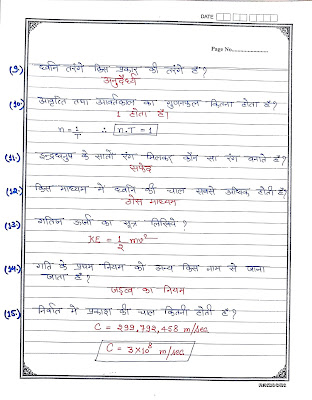 DATE
Page No.
(9) ध्वनि तरंगे किस प्रकार की तरंगे हैं?
अनुदैर्ध्य
(10) आवृत्ति तथा आवर्तकाल का गुणनफल कितना होता है?
1 होता है।
n = 1/T ∴ n.T = 1
(11) इन्द्रधनुष के सातों रंग मिलकर कौन सा रंग बनाते हैं?
सफेद
(12) किस माध्यम में ध्वनि की चाल सबसे अधिक होती है?
ठोस माध्यम
(13) गतिज ऊर्जा का सूत्र लिखिये?
KE = 1/2 mv²
(14) गति के प्रथम नियम को अन्य किस नाम से जाना
जाता है?
जड़त्व का नियम
(15) निर्वात में प्रकाश की चाल कितनी होती है?
C = 299,792,458 m/sec
C = 3×10⁸ m/sec